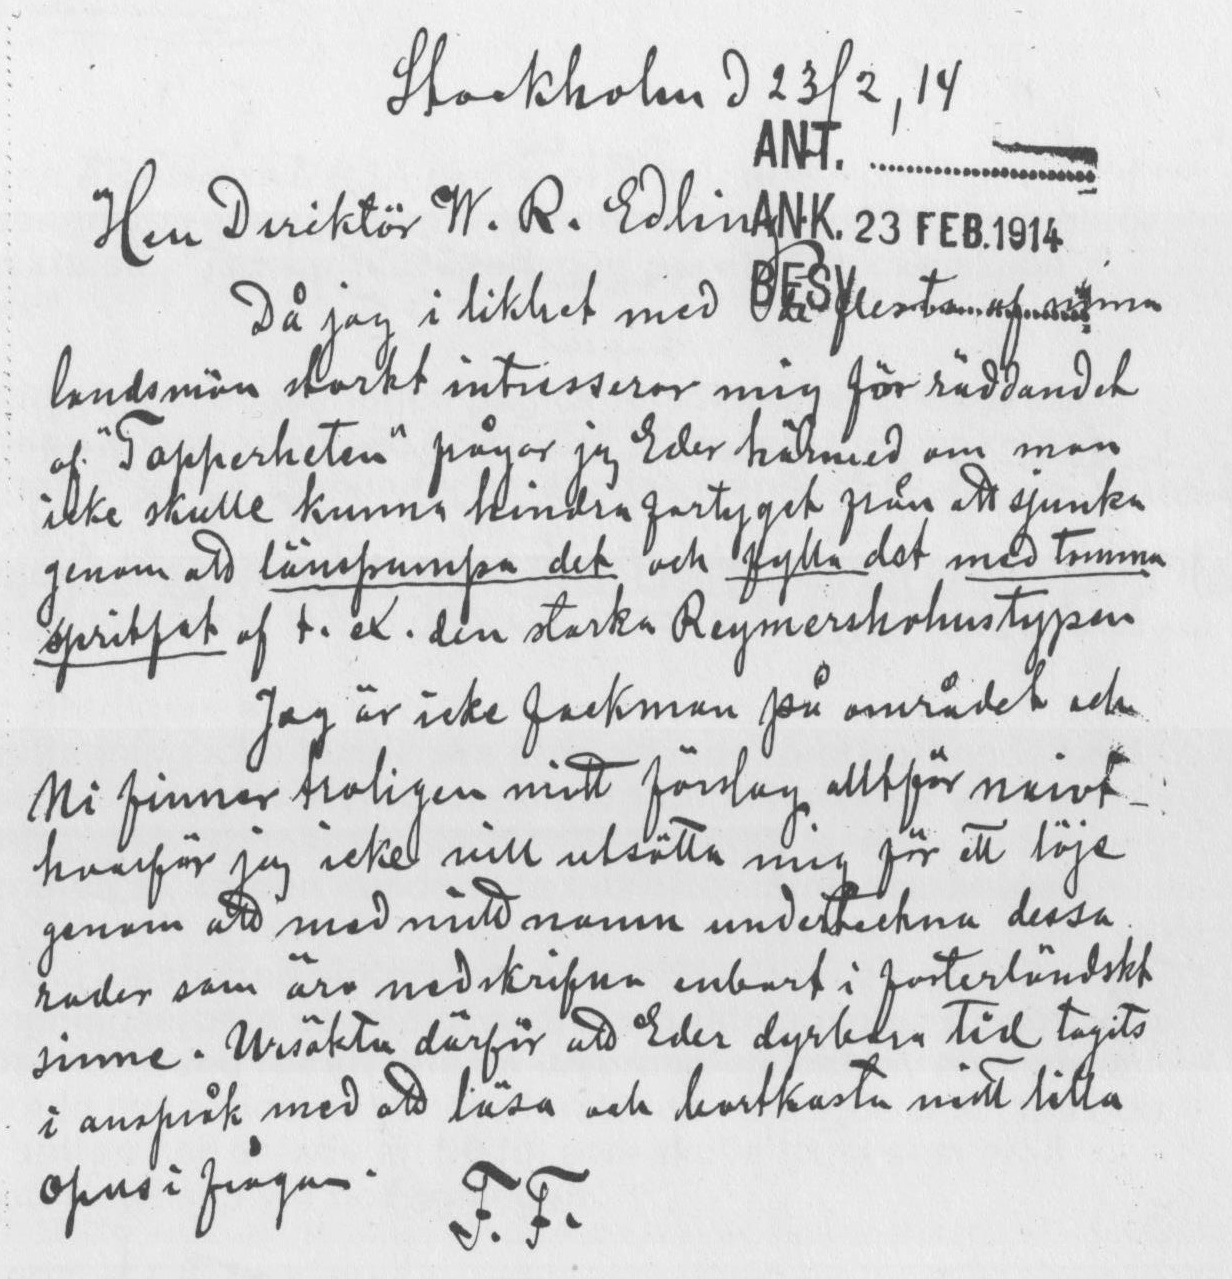 Stockholm d 23/2, 14
ANT.
Herr Direktör W. R. Edling
ANK. 23 FEB. 1914
BESV.
Då jag i likhet med de flesta af mina
landsmän starkt intresserar mig för räddandet
af "Tapperheten" frågar jag Eder härmed om man
icke skulle kunna hindra fartyget från att sjunka
genom att länspumpa det och fylla det med tomma
spritfat af t. ex. den starka Reymersholmstypen
Jag är icke fackman på området och
Ni finner troligen mitt förslag alltför naivt –
hvarför jag icke vill utsätta mig för ett löje
genom att med mitt namn underteckna dessa
rader som äro nedskrifna enbart i fosterländskt
sinne. Ursäkta därför att Eder dyrbara tid tagits
i anspråk med att läsa och bortkasta mitt lilla
opus i frågan.
F. F.